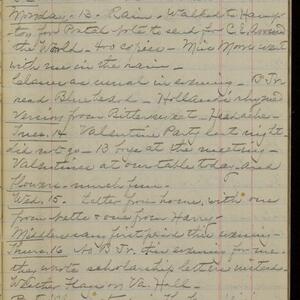 Monday. 13. Rain. Walked to Hamp-
ton for Postal note to send for C. E.
the World. 40 copies - Miss Morse went
with me in the rain -
Classes as usual in evening. - B Jr.
read Bluebeard - Holland's rhymed
version from Bittersweet - Headache -
Tues. 14 Valentine Party last night
did not go - 13 boys at the meeting -
Valentines at our table today and
flowers - much fun -
Wed. 15. Letter from home, with one
from and one from Harry -
Middlers first period this evening -
Thurs. 16 No B Jr. this evening for me -
they wrote scholarship letters instead -
Whittier Flag on Va. Hall -